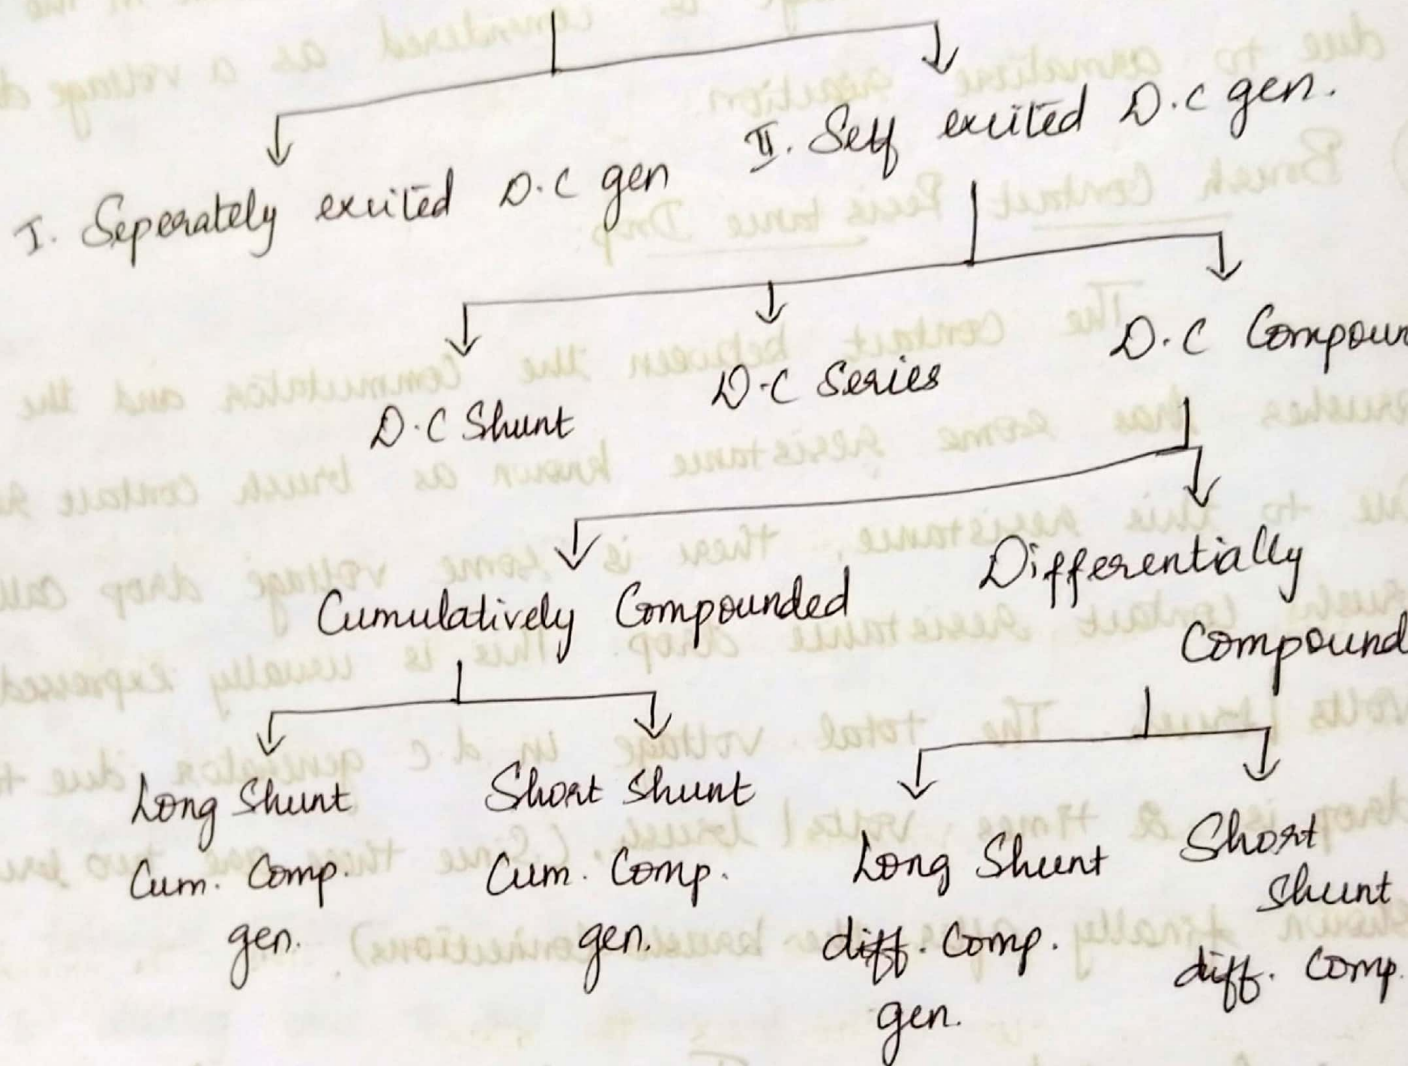 I. Seperately excited D.C gen
II. Self excited D.C gen.
D.C Shunt
D.C Series
D.C Compoun
Cumulatively Compounded
Differentially
Compound
Long Shunt
Cum. Comp.
gen.
Short Shunt
Cum. Comp.
gen.
Long Shunt
diff. Comp.
gen.
Short
Shunt
diff. Comp.